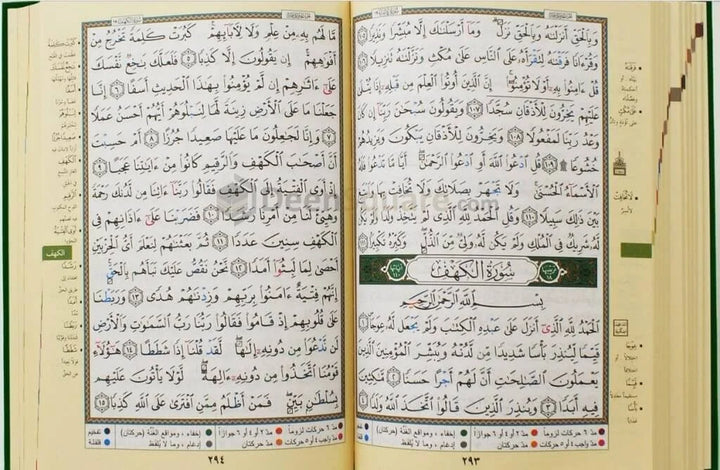 وَبِٱلْحَقِّ أَنزَلْنَٰهُ وَبِٱلْحَقِّ نَزَلَ ۗ وَمَآ أَرْسَلْنَٰكَ إِلَّا مُبَشِّرًا وَنَذِيرًا ١٠٥
وَقُرْءَانًا فَرَقْنَٰهُ لِتَقْرَأَهُۥ عَلَى ٱلنَّاسِ عَلَىٰ مُكْثٍ وَنَزَّلْنَٰهُ تَنزِيلًا ١٠٦
قُلْ ءَامِنُوا۟ بِهِۦٓ أَوْ لَا تُؤْمِنُوٓا۟ ۚ إِنَّ ٱلَّذِينَ أُوتُوا۟ ٱلْعِلْمَ مِن قَبْلِهِۦٓ إِذَا يُتْلَىٰ
عَلَيْهِمْ يَخِرُّونَ لِلْأَذْقَانِ سُجَّدًا ١٠٧ وَيَقُولُونَ سُبْحَٰنَ رَبِّنَآ إِن كَانَ
وَعْدُ رَبِّنَا لَمَفْعُولًا ١٠٨ وَيَخِرُّونَ لِلْأَذْقَانِ يَبْكُونَ وَيَزِيدُهُمْ
خُشُوعًا ۩ ١٠٩ قُلِ ٱدْعُوا۟ ٱللَّهَ أَوِ ٱدْعُوا۟ ٱلرَّحْمَٰنَ ۖ أَيًّا مَّا تَدْعُوا۟ فَلَهُ
ٱلْأَسْمَآءُ ٱلْحُسْنَىٰ ۚ وَلَا تَجْهَرْ بِصَلَاتِكَ وَلَا تُخَافِتْ بِهَا وَٱبْتَغِ
بَيْنَ ذَٰلِكَ سَبِيلًا ١١٠ وَقُلِ ٱلْحَمْدُ لِلَّهِ ٱلَّذِى لَمْ يَتَّخِذْ وَلَدًا وَلَمْ يَكُن
لَّهُۥ شَرِيكٌ فِى ٱلْمُلْكِ وَلَمْ يَكُن لَّهُۥ وَلِىٌّ مِّنَ ٱلذُّلِّ ۖ وَكَبِّرْهُ تَكْبِيرًۢا ١١١
سُورَةُ الْكَهْفِ
بِسْمِ ٱللَّهِ ٱلرَّحْمَٰنِ ٱلرَّحِيمِ
ٱلْحَمْدُ لِلَّهِ ٱلَّذِىٓ أَنزَلَ عَلَىٰ عَبْدِهِ ٱلْكِتَٰبَ وَلَمْ يَجْعَل لَّهُۥ عِوَجَا ۜ ١
قَيِّمًا لِّيُنذِرَ بَأْسًا شَدِيدًا مِّن لَّدُنْهُ وَيُبَشِّرَ ٱلْمُؤْمِنِينَ ٱلَّذِينَ
يَعْمَلُونَ ٱلصَّٰلِحَٰتِ أَنَّ لَهُمْ أَجْرًا حَسَنًا ٢ مَّٰكِثِينَ
فِيهِ أَبَدًا ٣ وَيُنذِرَ ٱلَّذِينَ قَالُوا۟ ٱتَّخَذَ ٱللَّهُ وَلَدًا ٤
٢٩٣
مَّا لَهُم بِهِۦ مِنْ عِلْمٍ وَلَا لِءَابَآئِهِمْ ۚ كَبُرَتْ كَلِمَةً تَخْرُجُ مِنْ
أَفْوَٰهِهِمْ ۚ إِن يَقُولُونَ إِلَّا كَذِبًا ٥ فَلَعَلَّكَ بَٰخِعٌ نَّفْسَكَ
عَلَىٰٓ ءَاثَٰرِهِمْ إِن لَّمْ يُؤْمِنُوا۟ بِهَٰذَا ٱلْحَدِيثِ أَسَفًا ٦ إِنَّا
جَعَلْنَا مَا عَلَى ٱلْأَرْضِ زِينَةً لَّهَا لِنَبْلُوَهُمْ أَيُّهُمْ أَحْسَنُ عَمَلًا
٧ وَإِنَّا لَجَٰعِلُونَ مَا عَلَيْهَا صَعِيدًا جُرُزًا ٨ أَمْ حَسِبْتَ
أَنَّ أَصْحَٰبَ ٱلْكَهْفِ وَٱلرَّقِيمِ كَانُوا۟ مِنْ ءَايَٰتِنَا عَجَبًا ٩
إِذْ أَوَى ٱلْفِتْيَةُ إِلَى ٱلْكَهْفِ فَقَالُوا۟ رَبَّنَآ ءَاتِنَا مِن لَّدُنكَ رَحْمَةً
وَهَيِّئْ لَنَا مِنْ أَمْرِنَا رَشَدًا ١٠ فَضَرَبْنَا عَلَىٰٓ ءَاذَانِهِمْ فِى
ٱلْكَهْفِ سِنِينَ عَدَدًا ١١ ثُمَّ بَعَثْنَٰهُمْ لِنَعْلَمَ أَىُّ ٱلْحِزْبَيْنِ
أَحْصَىٰ لِمَا لَبِثُوٓا۟ أَمَدًا ١٢ نَّحْنُ نَقُصُّ عَلَيْكَ نَبَأَهُم بِٱلْحَقِّ ۚ
إِنَّهُمْ فِتْيَةٌ ءَامَنُوا۟ بِرَبِّهِمْ وَزِدْنَٰهُمْ هُدًى ١٣ وَرَبَطْنَا
عَلَىٰ قُلُوبِهِمْ إِذْ قَامُوا۟ فَقَالُوا۟ رَبُّنَا رَبُّ ٱلسَّمَٰوَٰتِ وَٱلْأَرْضِ
لَن نَّدْعُوَا۟ مِن دُونِهِۦٓ إِلَٰهًا ۖ لَّقَدْ قُلْنَآ إِذًا شَطَطًا ١٤ هَٰٓؤُلَآءِ
قَوْمُنَا ٱتَّخَذُوا۟ مِن دُونِهِۦٓ ءَالِهَةً ۖ لَّوْلَا يَأْتُونَ عَلَيْهِم
بِسُلْطَٰنٍۭ بَيِّنٍ ۖ فَمَنْ أَظْلَمُ مِمَّنِ ٱفْتَرَىٰ عَلَى ٱللَّهِ كَذِبًا ١٥
٢٩٤
الكهف
DeenSquare.com